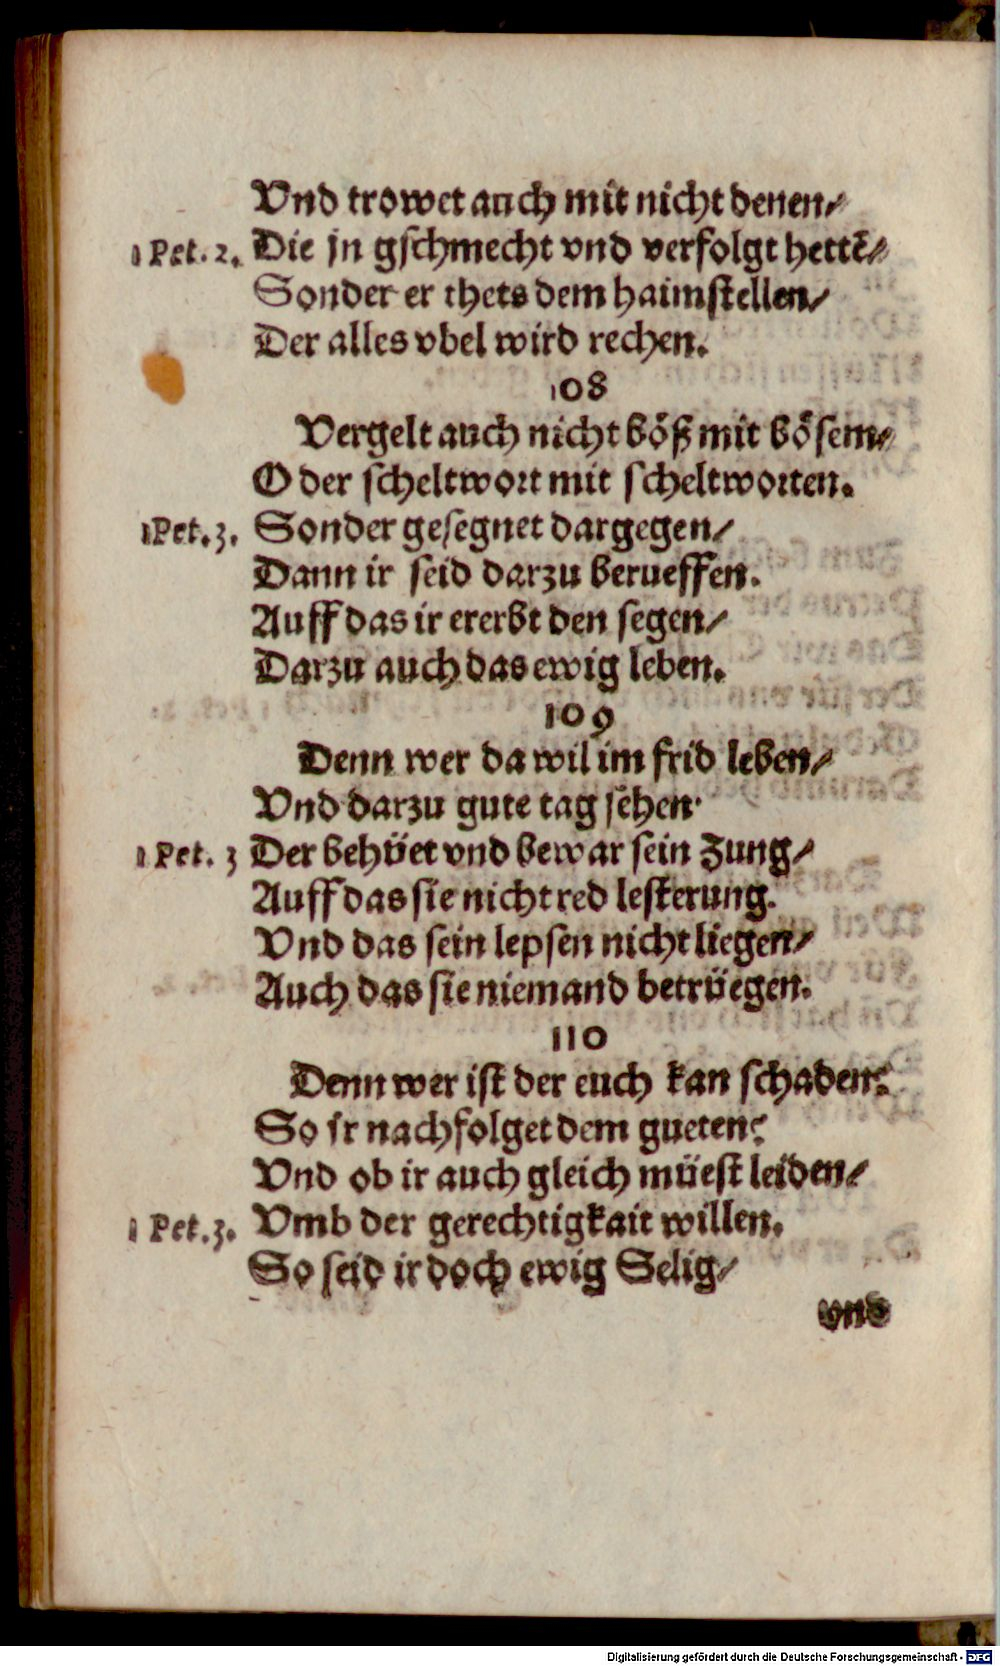 Vnd trowet auch mit nicht denen/
1 Pet. 2. Die jn gschmecht vnd verfolgt hettē/
Sonder er thets dem haimstellen/
Der alles vbel wird rechen.
108
Vergelt auch nicht böß mit bösem/
Oder scheltwort mit scheltworten.
1 Pet. 3. Sonder gesegnet dargegen/
Dann ir seid darzu berueffen.
Auff das ir ererbt den segen/
Darzu auch das ewig leben.
109
Denn wer da wil im frid leben/
Vnd darzu gute tag sehen.
1 Pet. 3 Der behüet vnd bewar sein Zung/
Auff das sie nicht red lesterung.
Vnd das sein lepsen nicht liegen/
Auch das sie niemand betrüegen.
110
Denn wer ist der euch kan schaden?
So ir nachfolget dem gueten?
Vnd ob ir auch gleich müest leiden/
1 Pet. 3. Vmb der gerechtigkait willen.
So seid ir doch ewig Selig/
vnd
Digitalisierung gefördert durch die Deutsche Forschungsgemeinschaft - DFG